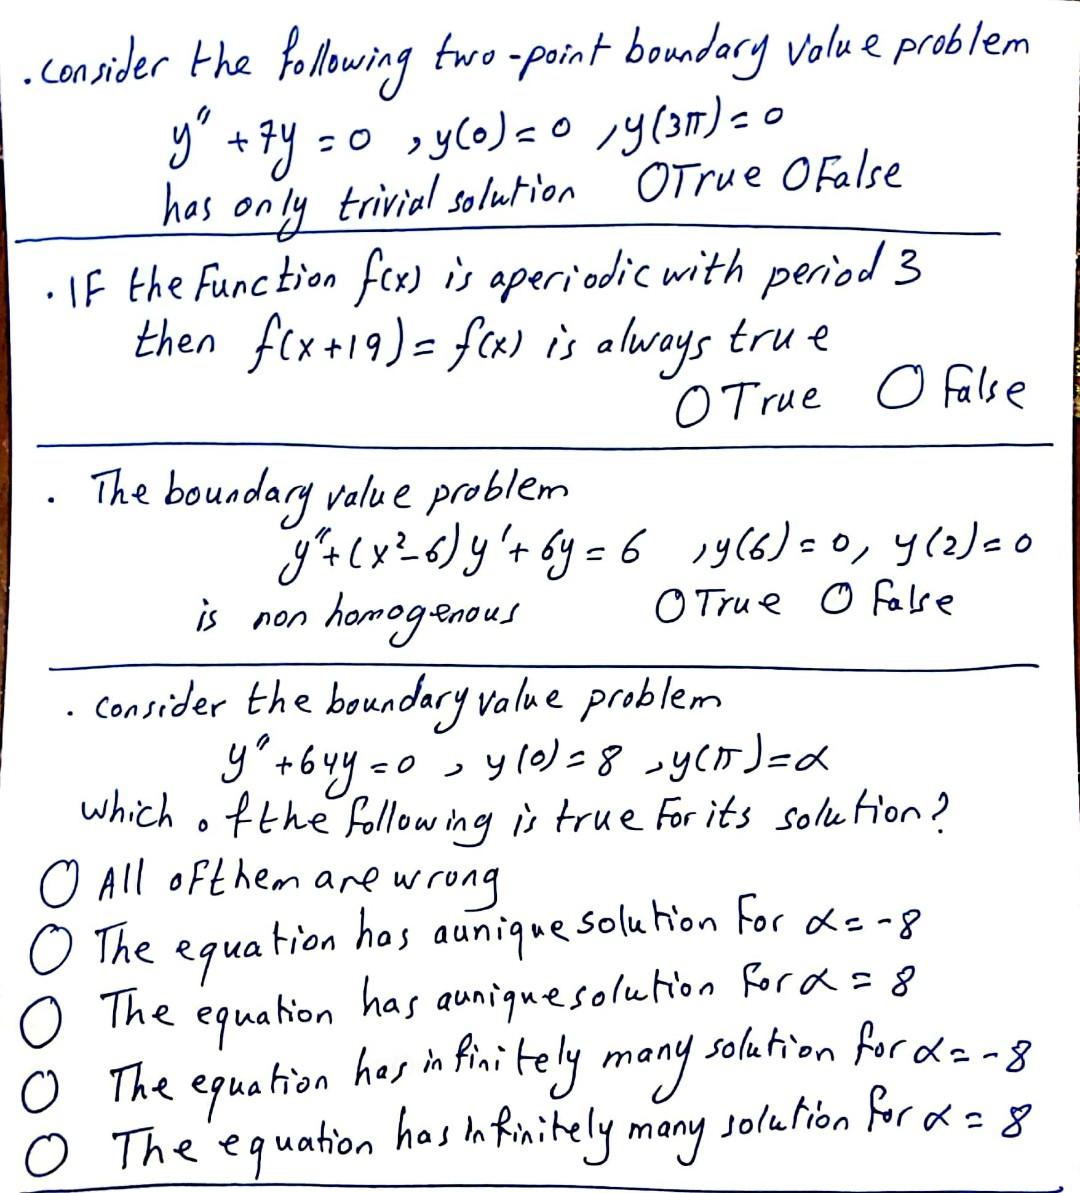 . Consider the following two-point boundary value problem
y" + 7y = 0 , y(0) = 0 , y(3π) = 0
has only trivial solution O True O False
. IF the Function f(x) is a periodic with period 3
then f(x+19) = f(x) is always true
O True O False
. The boundary value problem
y" + (x²-6) y' + 6y = 6 , y(6) = 0, y(2) = 0
is non homogenous O True O False
. Consider the boundary value problem
y" + 64y = 0 , y(0) = 8 , y(π) = α
which of the following is true For its solution?
O All of them are wrong
O The equation has a unique solution For α = -8
O The equation has a unique solution For α = 8
O The equation has infinitely many solution for α = -8
O The equation has infinitely many solution for α = 8